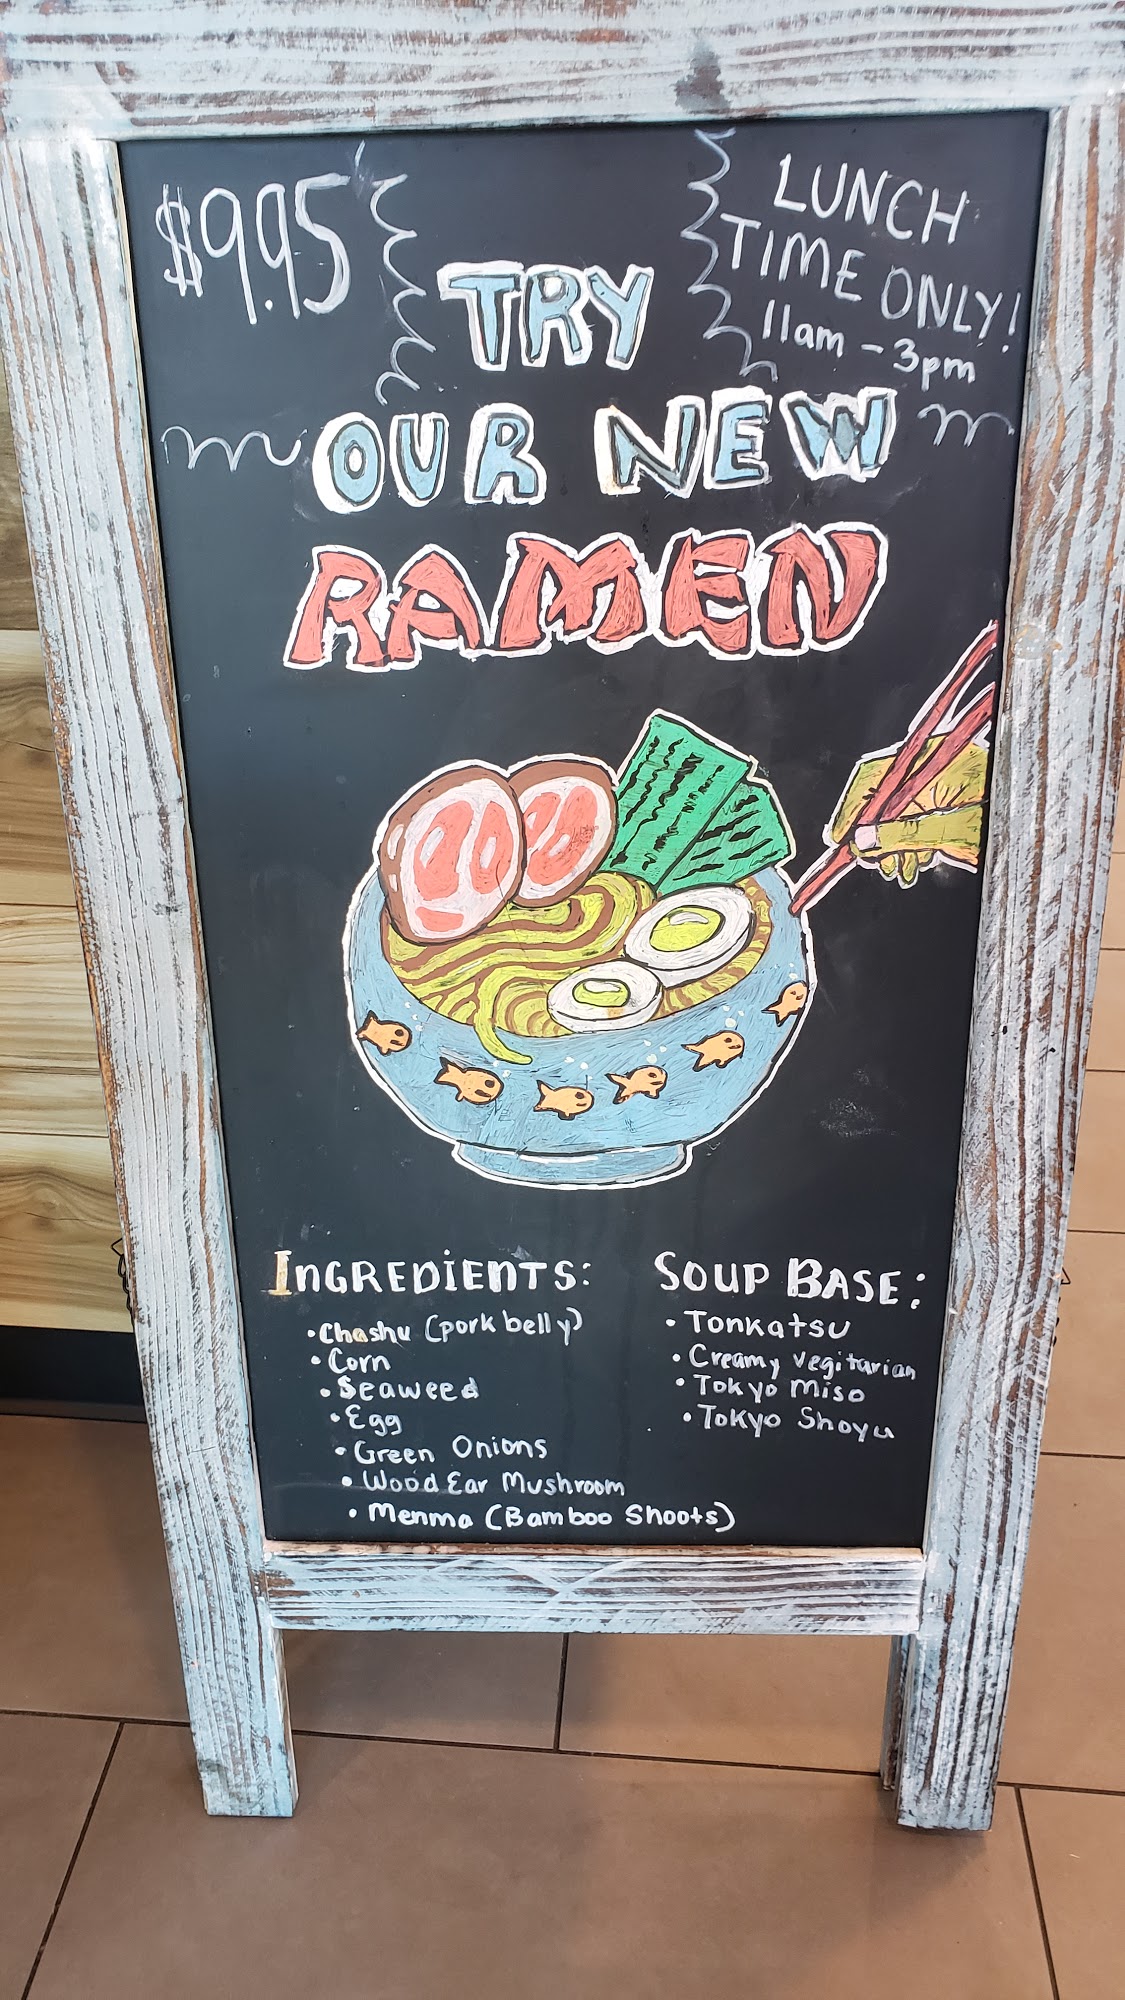 $9.95
LUNCH
TIME ONLY!
11am - 3pm
TRY
OUR NEW
RAMEN
INGREDIENTS:
• Chashu (pork belly)
• Corn
• Seaweed
• Egg
• Green Onions
• Wood Ear Mushroom
• Menma (Bamboo Shoots)
SOUP BASE:
• Tonkatsu
• Creamy Vegitarian
• Tokyo Miso
• Tokyo Shoyu